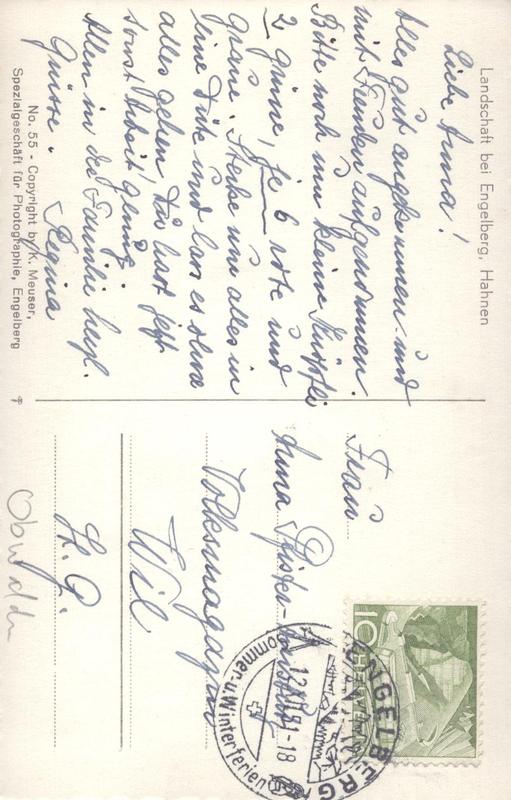 Landschaft bei Engelberg, Hahnen
Liebe Anna!
Alles gut angekommen und
mit Freuden aufgenommen.
Bitte noch um kleine Knöpfli
2 grüne, je 6 rote und
Stecke um alles in
eine Düte und lass es ohne
alles gehen Du hast jetzt
sonst Arbeit genug.
Allen in der Familie herzl.
Grüsse. Regina
No. 55 - Copyright by K. Meuser,
Spezialgeschäft für Photographie, Engelberg
Frau
Anna Pfister-
Volksmagazin
Wil
St. G.
Obwalden
10
HELVETIA
ENGELBERG
12.XII.51-18
Sommer-u.Winterferien